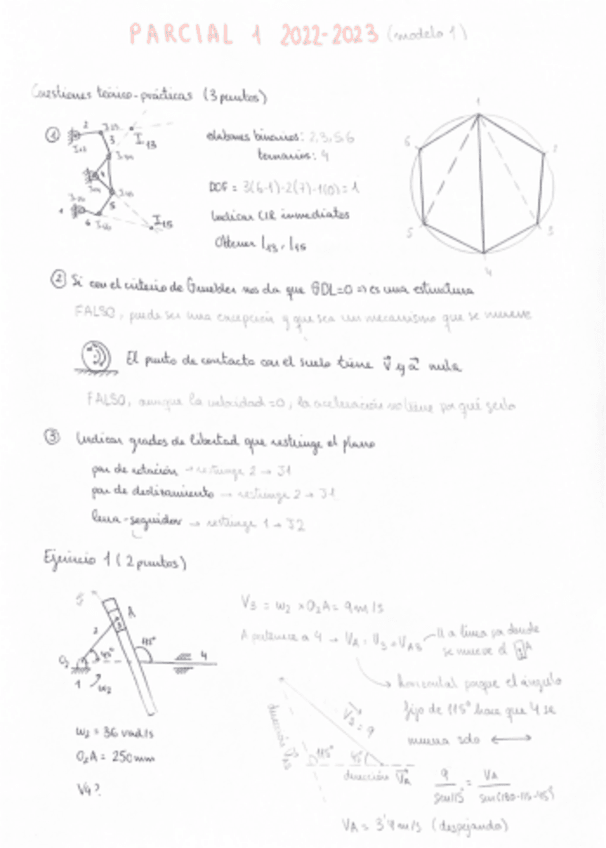 PARCIAL 1 2022-2023 (modelo 1)
Cuestiones teórico-prácticas (3 puntos)
①
eslabones binarios: 2,3,5,6
ternarios: 4
DOF = 3(6-1)-2(7)-1(0)=1
Indicar CIR inmediatos
Obtener I13, I15
2
3
I13
5
6
I15
1
1
2
3
4
5
6
② Si con el criterio de Gruebler nos da que GDL=0 => es una estructura
FALSO, puede ser una excepción y que sea un mecanismo que se mueve
El punto de contacto con el suelo tiene v y a nula
FALSO, aunque la velocidad =0, la aceleración no tiene por qué serlo
③ Indicar grados de libertad que restringe el plano
par de rotación → restringe 2 → J1
par de deslizamiento → restringe 2 → J1
leva-seguidor → restringe 1 → J2
Ejercicio 1 (2 puntos)
A
2
3
45°
115°
4
O2
1
ω2
ω2 = 36 rad/s
O2A = 250mm
V4?
V3 = ω2 × O2A = 9 m/s
A pertenece a 4 → VA = V3 + VA3
// a línea por donde
se mueve el A
horizontal porque el ángulo
fijo de 115° hace que 4 se
mueva solo ↔
V3 = 9
dirección VA3
115°
45°
dirección VA
9/sen115° = VA/sen(180-115-45°)
VA = 3'4 m/s (despejando)